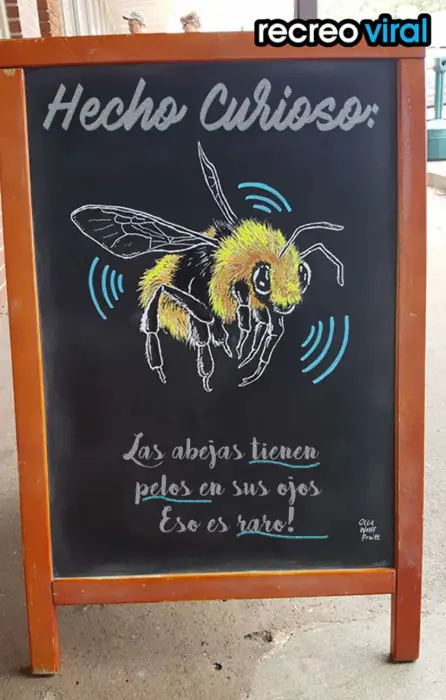 recreo viral
Hecho Curioso:
Las abejas tienen
pelos en sus ojos
Eso es raro!
Ollie
Wolff
Pruitt